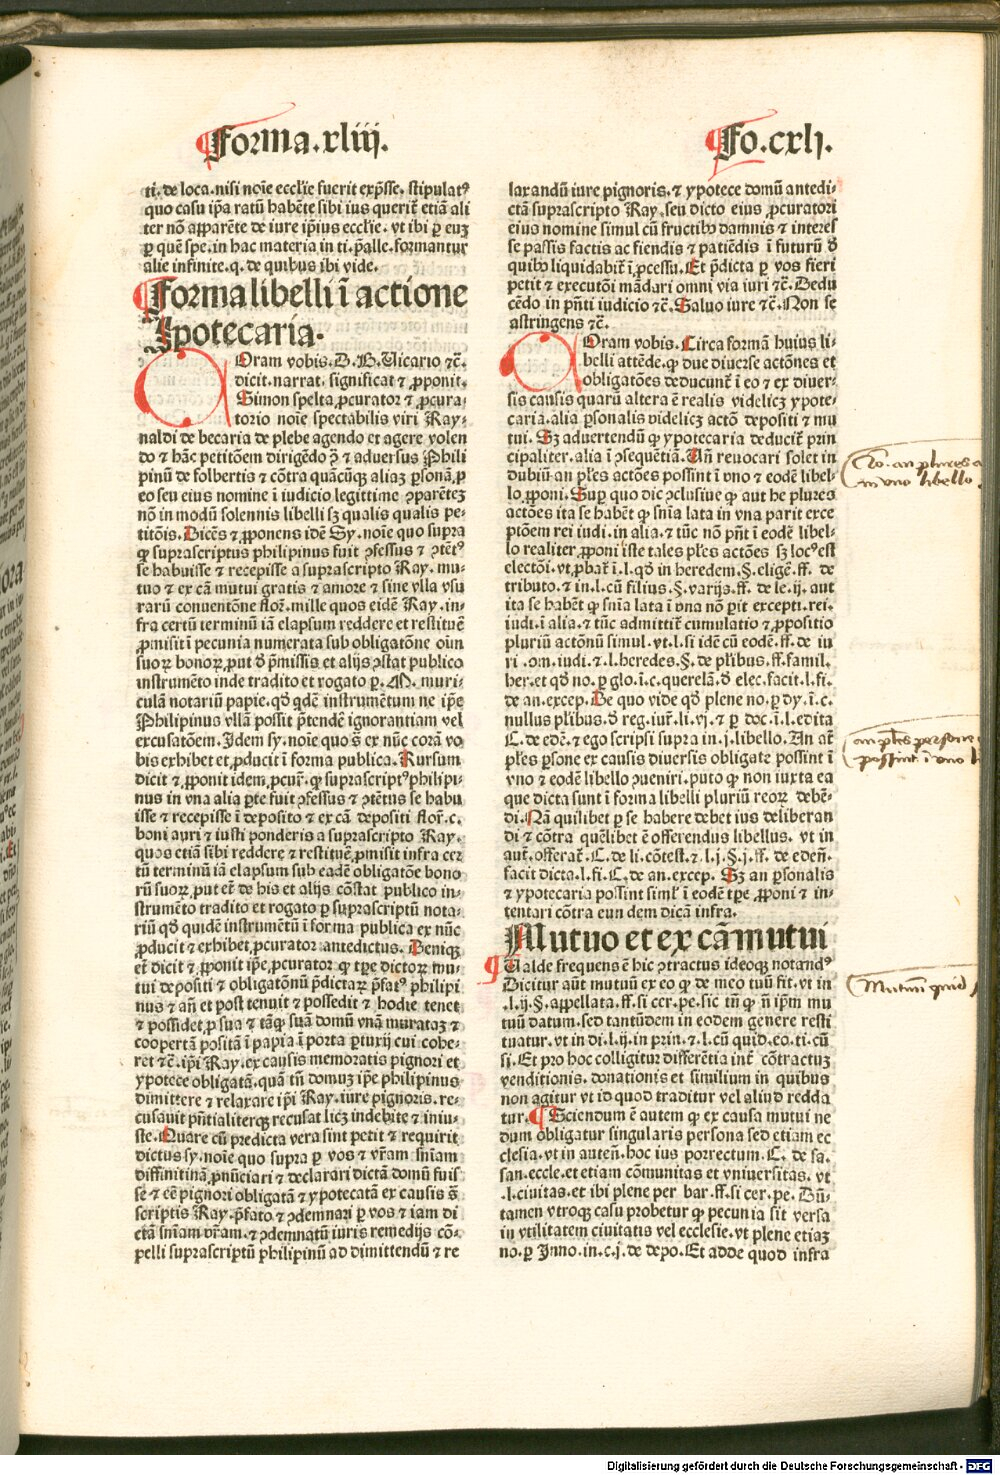 Forma.xliij.
Fo.cxlj.
ti. de loca. nisi noīe ecclīe fuerit exp̄sse. stipulatꝰ
quo casu ip̄a ratū habēte sibi ius querit̄ etiā ali
ter nō apparēte de iure ip̄ius ecclīe. vt ibi ꝑ euꝫ
ꝑ quē spe. in hac materia in ti. p̄alle. formantur
alie infinite. q. de quibus ibi vide.
Forma libelli ī actione
Ipotecaria.
Oram vobis. D. B. Uicario ⁊c̄.
dicit. narrat. significat ⁊ ꝓponit.
Simon spelta ꝓcurator ⁊ ꝓcura⸗
torio noīe spectabilis viri Ray⸗
naldi de becaria de plebe agendo et agere volen
do ⁊ hāc petitōem dirigēdo ꝯ̄ ⁊ aduersus Phili
pinū de folbertis ⁊ cōtra quācūqꝫ aliaꝫ ꝑsonā ꝑ
eo seu eius nomine ī iudicio legittime ꝯparēteꝫ
nō in modū solennis libelli sꝫ qualis qualis pe⸗
titōis. Dicēs ⁊ ꝓponens idē Sy. noīe quo supra
ꝙ suprascriptus philipinus fuit ꝯfessus ⁊ ꝯtētꝰ
se habuisse ⁊ recepisse a suprascripto Ray. mu⸗
tuo ⁊ ex cā mutui gratis ⁊ amore ⁊ sine vlla vsu
rarū conuentōne floꝝ. mille quos eidē Ray. in⸗
fra certū terminū iā elapsum reddere et restituē
ꝓmisit ī pecunia numerata sub obligatōne oīun
suoꝝ bonoꝝ. put ꝺ p̄missis et alijs ꝯstat publico
instrumēto inde tradito et rogato ꝑ. M. muri⸗
culā notariū papie. qꝺ̄ qdē instrumētum ne ip̄e
Philipinus vllā possit p̄tendē ignorantiam vel
excusatōem. Idem sy. noīe quo s̄ ex nūc corā vo
bis exhibet et ꝓducit ī forma publica. Rursum
dicit ⁊ ꝓponit idem ꝓcur̄. ꝙ suprascriptꝰ philipi⸗
nus in vna alia ꝑte fuit ꝯfessus ⁊ ꝯtētus se habu
isse ⁊ recepisse ī deposito ⁊ ex cā depositi floꝝ. c.
boni auri ⁊ iusti ponderis a suprascripto Ray.
quos etiā sibi reddere ⁊ restituē ꝓmisit infra cer
tū terminū iā elapsum sub eadē obligatōe bono
rū suoꝝ. put et̄ de his et alijs cōstat publico in⸗
strumēto tradito et rogato ꝑ suprascriptū nota⸗
riū qꝺ̄ quidē instrumētū ī forma publica ex nūc
ꝓducit ⁊ exhibet ꝓcurator antedictus. Deniqꝫ
et̄ dicit ⁊ ꝓponit ip̄e ꝓcurator ꝙ tꝑe dictoꝝ mu⸗
tui depositi ⁊ obligatōnū p̄dictaꝝ p̄fatꝰ philipi
nus ⁊ an̄ et post tenuit ⁊ possedit ⁊ hodie tenet
⁊ possidet ꝓ sua ⁊ tāqꝫ suā domū vnā murataꝫ ⁊
coopertā positā ī papia ī porta ꝑturij cui cohe⸗
ret ⁊c̄. ip̄i Ray. ex causis memoratis pignori et
ypotece obligatā. quā tn̄ domuꝫ ip̄e philipinus
dimittere ⁊ relaxare ip̄i Ray. iure pignoris. re⸗
cusauit p̄ntialiterqꝫ recusat licꝫ indebite ⁊ iniu⸗
ste. Quare cū predicta vera sint petit ⁊ requirit
dictus sy. noīe quo supra ꝑ vos ⁊ vr̄am sn̄iam
diffinitiuā ꝓnūciari ⁊ declarari dictā domū fuis
se ⁊ eē pignori obligatā ⁊ ypotecatā ex causis s̄
scriptis Ray. p̄fato ⁊ ꝯdemnari ꝑ vos ⁊ iam di
ctā sn̄iam vr̄am. ⁊ ꝯdemnatū iuris remedijs cō⸗
pelli suprascriptū philipinū ad dimittendū ⁊ re
laxandū iure pignoris. ⁊ ypotece domū antedi⸗
ctā suprascripto Ray. seu dicto eius ꝓcuratori
eius nomine simul cū fructibꝰ damnis ⁊ interes
se passis factis ac fiendis ⁊ patiēdis ī futurū ꝺ
quibꝰ liquidabit̄ ī ꝓcessu. Et p̄dicta ꝑ vos fieri
petit ⁊ executōi mādari omni via iuri ⁊c̄. Dedu
cēdo in p̄nti iudicio ⁊c̄. Saluo iure ⁊c̄. Non se
astringens ⁊c̄.
Oram vobis. Circa formā huius li⸗
belli attēde. ꝙ due diuerse actōnes et
obligatōes deducunt̄ ī eo ⁊ ex diuer⸗
sis causis quarū altera ē realis videlicꝫ ypote⸗
caria. alia ꝑsonalis videlicꝫ actō depositi ⁊ mu
tui. Sꝫ aduertendū ꝙ ypotecaria deducit̄ prin
cipaliter. alia ī ꝯsequētiā. Un̄ reuocari solet in
dubiū an pl̄es actōes possint ī vno ⁊ eodē libel⸗
lo ꝓponi. Suꝑ quo dic ꝯclusiue ꝙ aut he plures
actōes ita se habēt ꝙ sn̄ia lata in vna parit exce
ptōem rei iudi. in alia. ⁊ tūc nō pn̄t ī eodē libel⸗
lo realiter ꝓponi iste tales pl̄es actōes sꝫ locꝰ est
electōi. vt ꝓbat̄ ī. l. qꝺ̄ in heredem. §. eligē. ff. de
tributo. ⁊ in. l. cū filius. §. varijs. ff. de le. ij. aut
ita se habēt ꝙ sn̄ia lata ī vna nō ꝑit excepti. rei.
iudi. ī alia. ⁊ tūc admittit̄ cumulatio ⁊ ꝓpositio
pluriū actōnū simul. vt. l. si idē cū eodē. ff. de iu
ri. om. iudi. ⁊. l. heredes. §. de pl̄ibus. ff. famil.
her. et qꝺ̄ no. ꝑ glo. ī. c. querelā. ꝺ elec. facit. l. fi.
de an. excep. De quo vide qꝺ̄ plene no. ꝑ dy. ī. c.
nullus pl̄ibus. ꝺ reg. iur̄. li. vj. ⁊ ꝑ doc. ī. l. edita
C. de edē. ⁊ ego scripsi supra in. j. libello. An at̄
pl̄es ꝑsone ex causis diuersis obligate possint ī
vno ⁊ eodē libello ꝯueniri. puto ꝙ non iuxta ea
que dicta sunt ī forma libelli pluriū reoꝝ debē⸗
di. Nā quilibet ꝑ se habere debet ius deliberan
di ⁊ cōtra quēlibet ē offerendus libellus. vt in
aut̄. offerat̄. C. de li. cōtest. ⁊. l. j. §. j. ff. de eden̄.
facit dicta. l. fi. C. de an. excep. Sꝫ an ꝑsonalis
⁊ ypotecaria possint siml̄ ī eodē tꝑe ꝓponi ⁊ in⸗
tentari cōtra eun dem dicā infra.
Mutuo et ex cā mutui
Ualde frequens ē hic ꝯtractus ideoqꝫ notandꝰ
Dicitur aūt mutuū ex eo ꝙ de meo tuū fit. vt in
.l. ij. §. appellata. ff. si cer. pe. sic tn̄ ꝙ n̄ ip̄m mu
tuū datum. sed tantūdem in eodem genere resti
tuatur. vt in di. l. ij. in prin. ⁊. l. cū quid. eo. ti. cū
si. Et pro hoc colligitur differētia int̄ cōtractuꝫ
venditionis. donationis et similium in quibus
non agitur vt id quod traditur vel aliud redda
tur. ¶ Sciendum ē autem ꝙ ex causa mutui ne
dum obligatur singularis persona sed etiam ec
clesia. vt in auten̄. hoc ius porrectum. C. de sa.
san. eccle. et etiam cōmunitas et vniuersitas. vt
.l. ciuitas. et ibi plene per bar. ff. si cer. pe. Dū⸗
tamen vtroqꝫ casu probetur ꝙ pecunia sit versa
in vtilitatem ciuitatis vel ecclesie. vt plene etiaꝫ
no. ꝑ Inno. in. c. j. de depo. Et adde quod infra
No. an plures a
in vno libello
an pl̄es persone
possint ī vno li
Mutuum quid
Digitalisierung gefördert durch die Deutsche Forschungsgemeinschaft - DFG